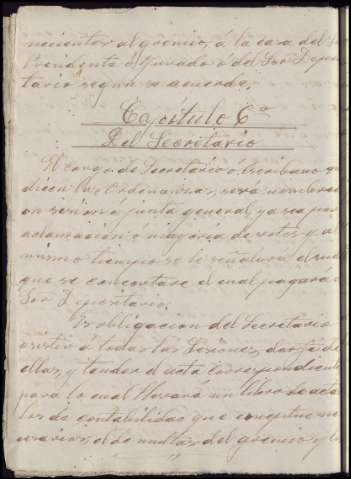 necientes al gremio, á la casa del Sor
Presidente ó Jurado ó del Sor Depósi-
tario segun se acuerde.
Capítulo 6º
Del Secretario
El cargo de Secretario ó escribano que
dicen las Ordenanzas, será nombrado
en seccion ó junta general, ya sea por
aclamación ó mayoría de votos y al
mismo tiempo se le señalara el sueldo
que se concertare el cual pagará el
Sor Depositario.
Es obligacion del Secretario
asistir á todas las Sesiones, dar fé de
ellas, y tender el acta correspondiente
para lo cual llevará un libro de actas
los de contabilidad que conceptue ne-
cesarios, el de multas, del gremio y